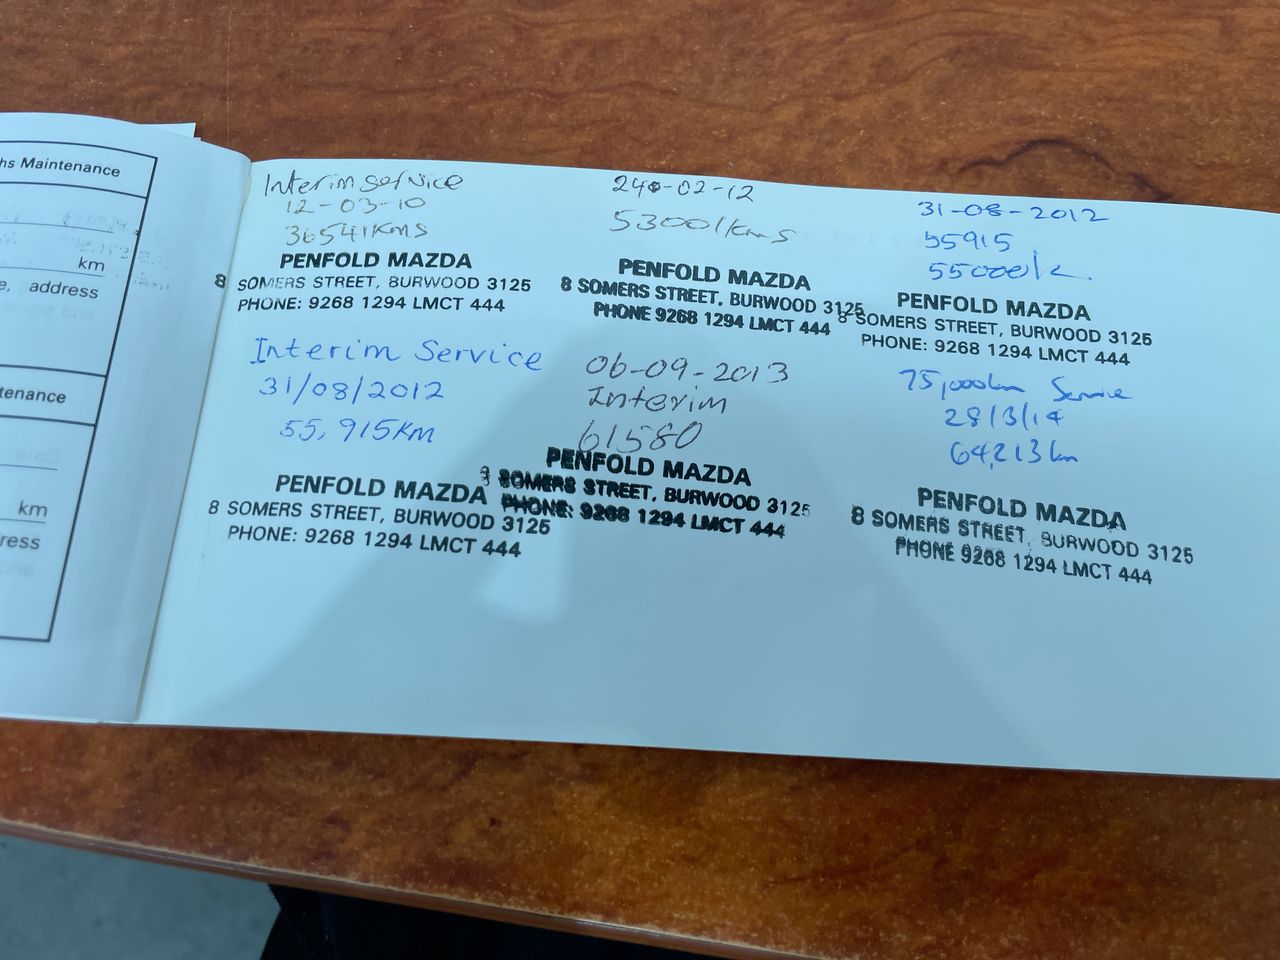 hs Maintenance
km
e, address
tenance
km
ress
Interim service
12-03-10
36541kms
PENFOLD MAZDA
8 SOMERS STREET, BURWOOD 3125
PHONE: 9268 1294 LMCT 444
240-02-12
53001kms
PENFOLD MAZDA
8 SOMERS STREET, BURWOOD 3125
PHONE 9268 1294 LMCT 444
31-08-2012
55915
55000k.
PENFOLD MAZDA
8 SOMERS STREET, BURWOOD 3125
PHONE: 9268 1294 LMCT 444
Interim Service
31/08/2012
55,915km
PENFOLD MAZDA
8 SOMERS STREET, BURWOOD 3125
PHONE: 9268 1294 LMCT 444
06-09-2013
Interim
61580
PENFOLD MAZDA
8 SOMERS STREET, BURWOOD 3125
PHONE: 9268 1294 LMCT 444
75,000km Service
28/3/14
64,213km
PENFOLD MAZDA
8 SOMERS STREET, BURWOOD 3125
PHONE 9268 1294 LMCT 444